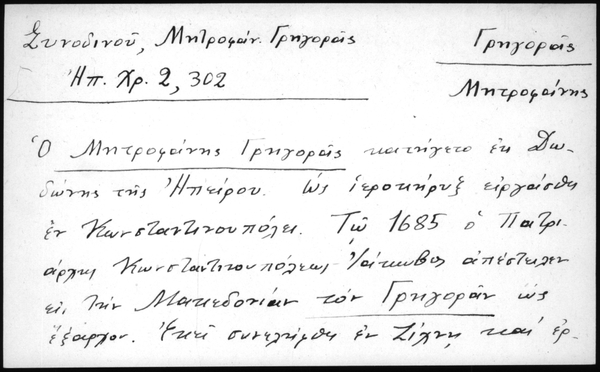 Συνοδινοῦ, Μητροφάν. Γρηγορᾶς
Γρηγορᾶς
Ἠπ. Χρ. 2, 302
Μητροφάνης
Ὁ Μητροφάνης Γρηγορᾶς κατήγετο ἐκ Δω-
δώνης τῆς Ἠπείρου. Ὡς ἱεροκήρυξ εἰργάσθη
ἐν Κωνσταντινουπόλει. Τῷ 1685 ὁ Πατρι-
άρχης Κωνσταντινουπόλεως Ἰάκωβος ἀπέστειλεν
εἰς τὴν Μακεδονίαν τὸν Γρηγορᾶν ὡς
ἔξαρχον. Ἐκεῖ συνελήφθη ἐν Ζίχνῃ καὶ ἐρ-